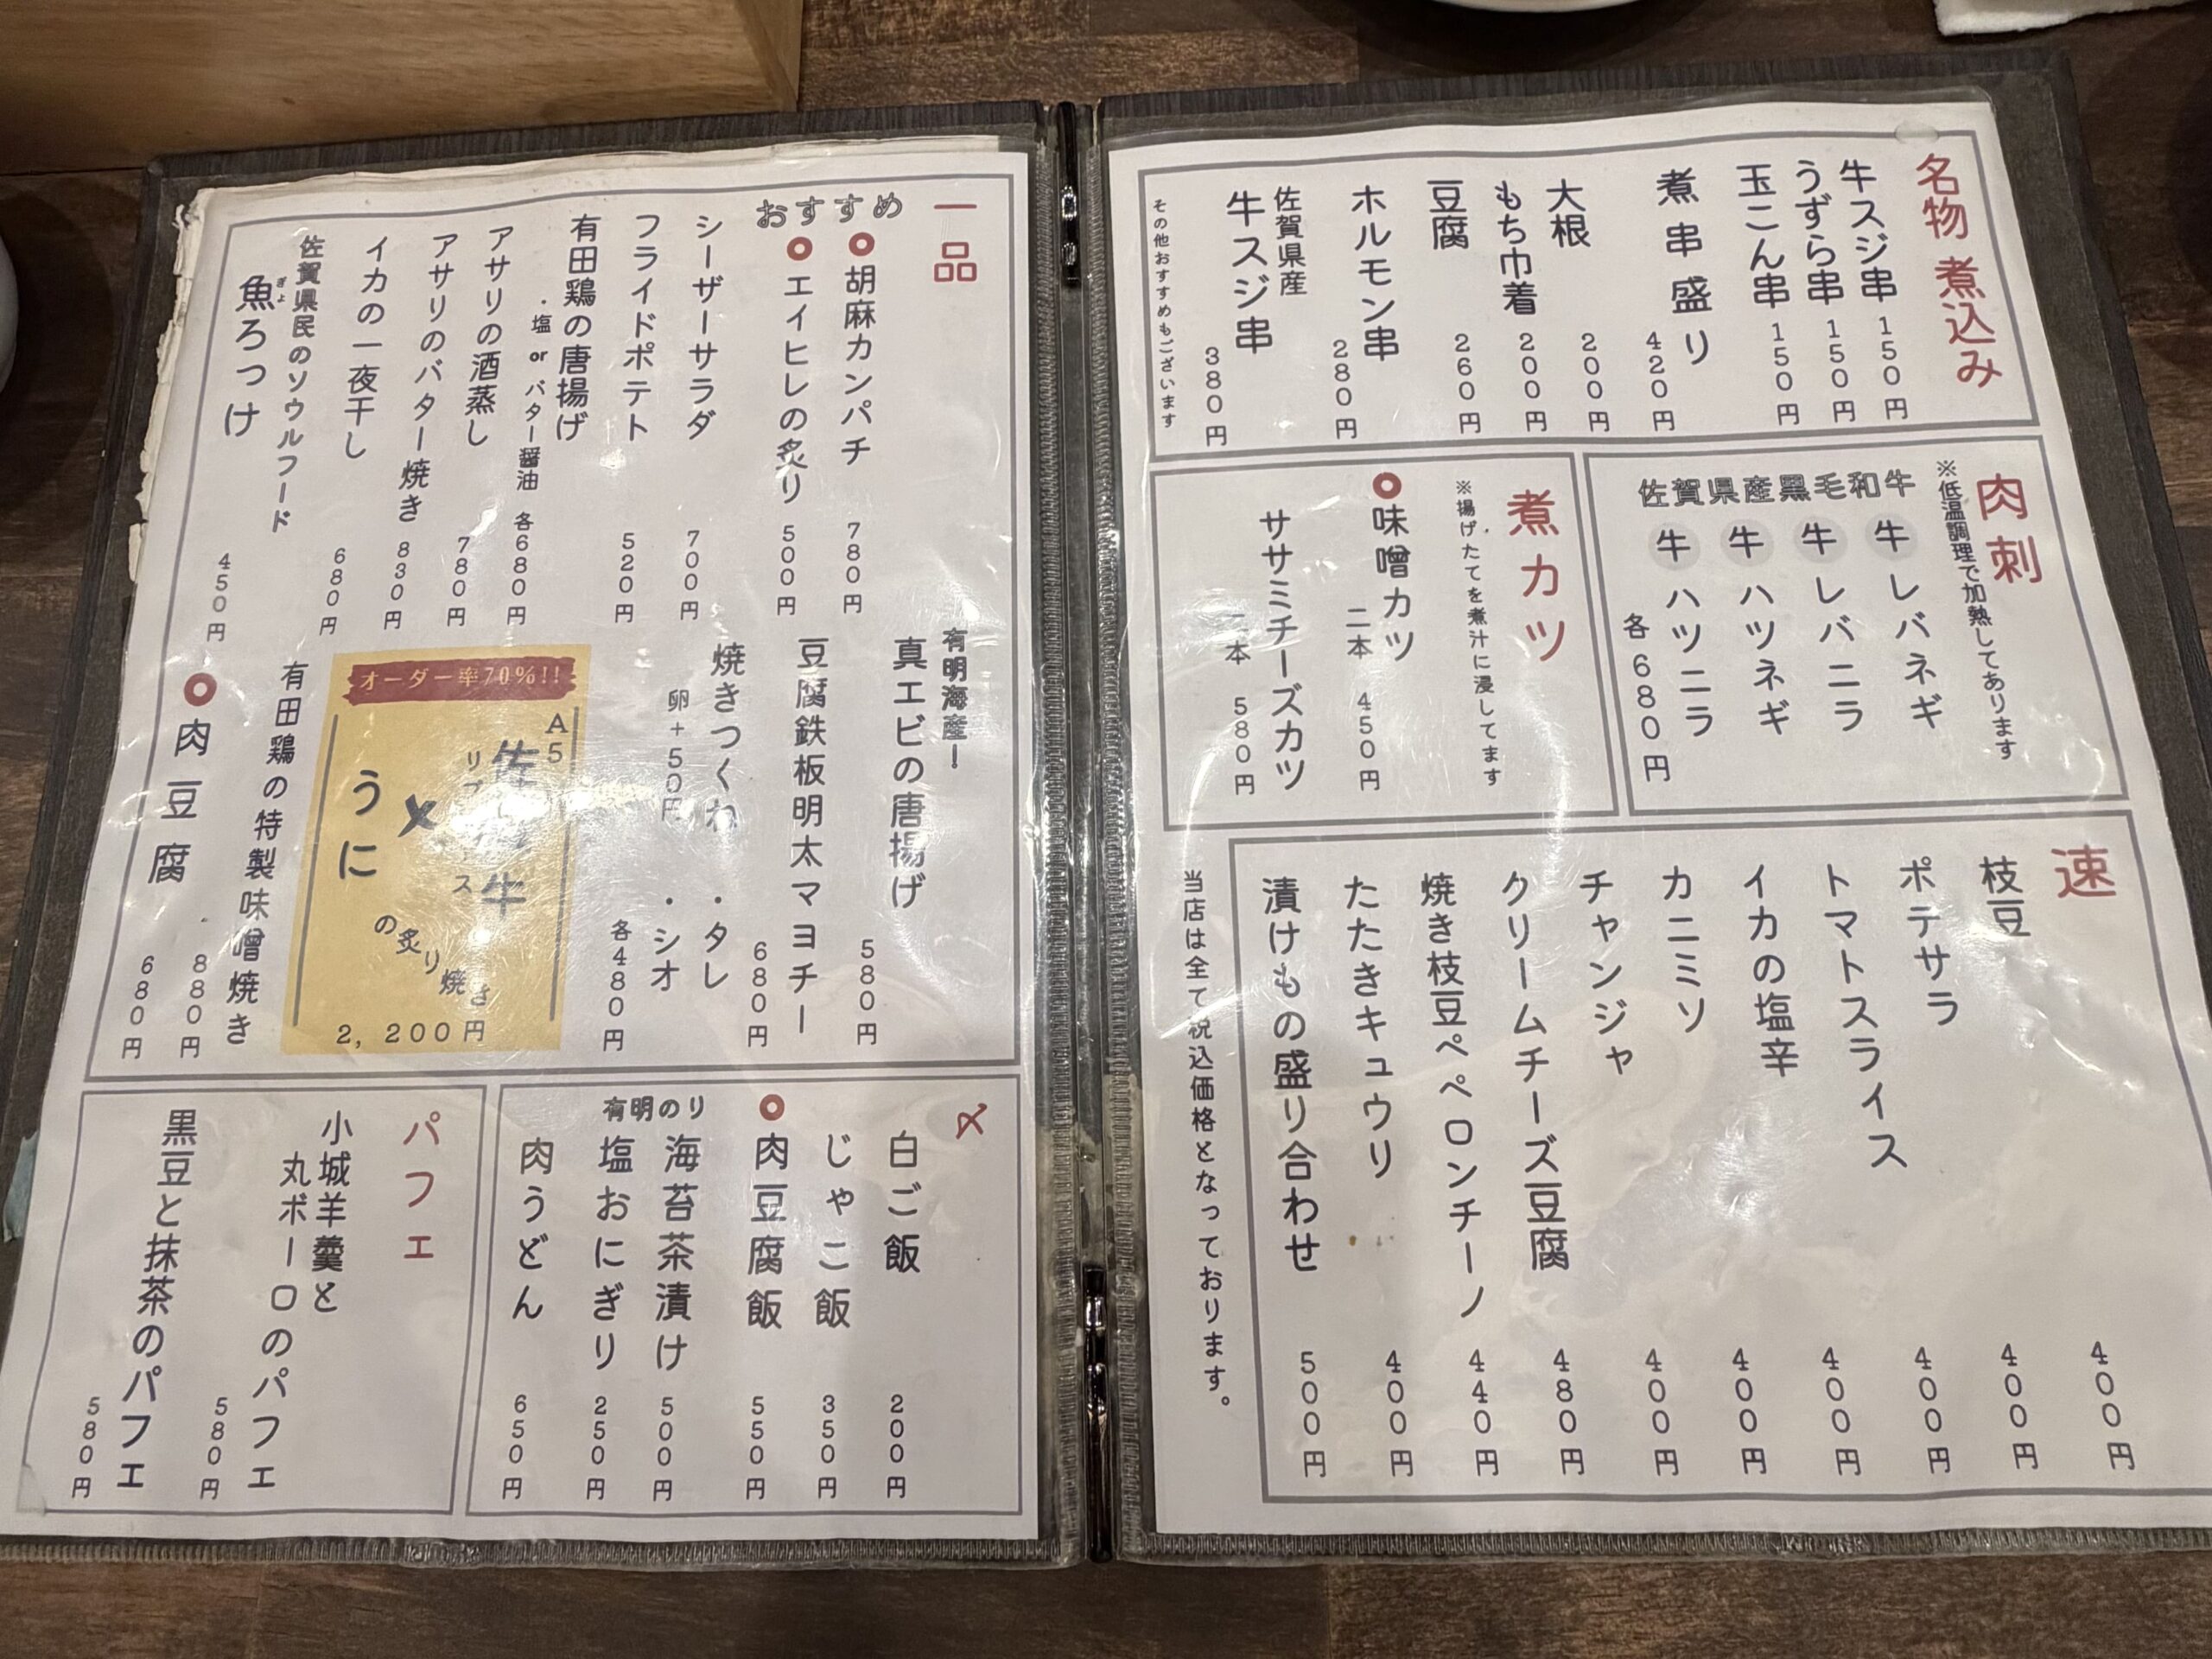 名物 煮込み
牛スジ串 150円
うずら串 150円
玉こん串 150円
煮串盛り 420円
大根 200円
もち巾着 200円
豆腐 260円
ホルモン串 280円
佐賀県産
牛スジ串 380円
その他おすすめもございます
肉刺
※低温調理で加熱してあります
佐賀県産黒毛和牛
牛レバネギ
牛レバニラ
牛ハツネギ
牛ハツニラ
各680円
煮カツ
※揚げたてを煮汁に浸してます
味噌カツ
二本 450円
ササミチーズカツ
二本 580円
速
枝豆 400円
ポテサラ 400円
トマトスライス 400円
イカの塩辛 400円
カニミソ 400円
チャンジャ 400円
クリームチーズ豆腐 480円
焼き枝豆ペペロンチーノ 440円
たたきキュウリ 400円
漬けもの盛り合わせ 500円
当店は全て税込価格となっております。
一品
おすすめ
胡麻カンパチ 780円
エイヒレの炙り 500円
シーザーサラダ 700円
フライドポテト 520円
有田鶏の唐揚げ
・塩 or バター醤油 各680円
アサリの酒蒸し 780円
アサリのバター焼き 830円
イカの一夜干し 680円
佐賀県民のソウルフード
魚ろっけ 450円
ぎょ
有明海産！
真エビの唐揚げ 580円
豆腐鉄板明太マヨチー 680円
焼きつくね
・タレ
・シオ
卵+50円
各480円
オーダー率70%!!
A5
佐賀牛
リブロース
×
うに
の炙り焼き
2,200円
有田鶏の特製味噌焼き 880円
肉豆腐 680円
〆
白ご飯 200円
じゃこ飯 350円
肉豆腐飯 550円
有明のり
海苔茶漬け 500円
塩おにぎり 250円
肉うどん 650円
パフェ
小城羊羹と
丸ボーロのパフェ 580円
黒豆と抹茶のパフェ 580円